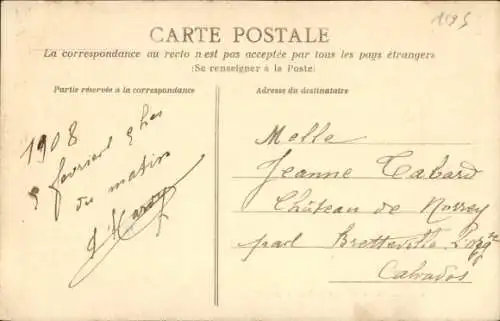 1195
CARTE POSTALE
La correspondance au recto n'est pas acceptée par tous les pays étrangers
(Se renseigner à la Poste)
Partie réservée à la correspondance
Adresse du destinataire
1908
9 février 9 hes
du matin
Melle
Jeanne Tabard
Château de Norrey
par Bretteville l'orgse
Calvados